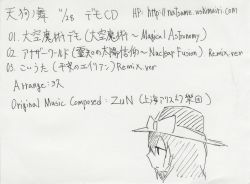 天狗ノ舞 11/28 デモCD HP: http://natsume.wakwaiti.com
01. 大空魔術デモ(大空魔術 ～ Magical Astronomy)
02. アナザーワールド(霊知の太陽信仰 ～ Nuclear Fusion) Remix.ver
03. こいうた(平安のエイリアン) Remix.ver
Arrange:
Original Music Composed : ZUN (上海アリス幻樂団)